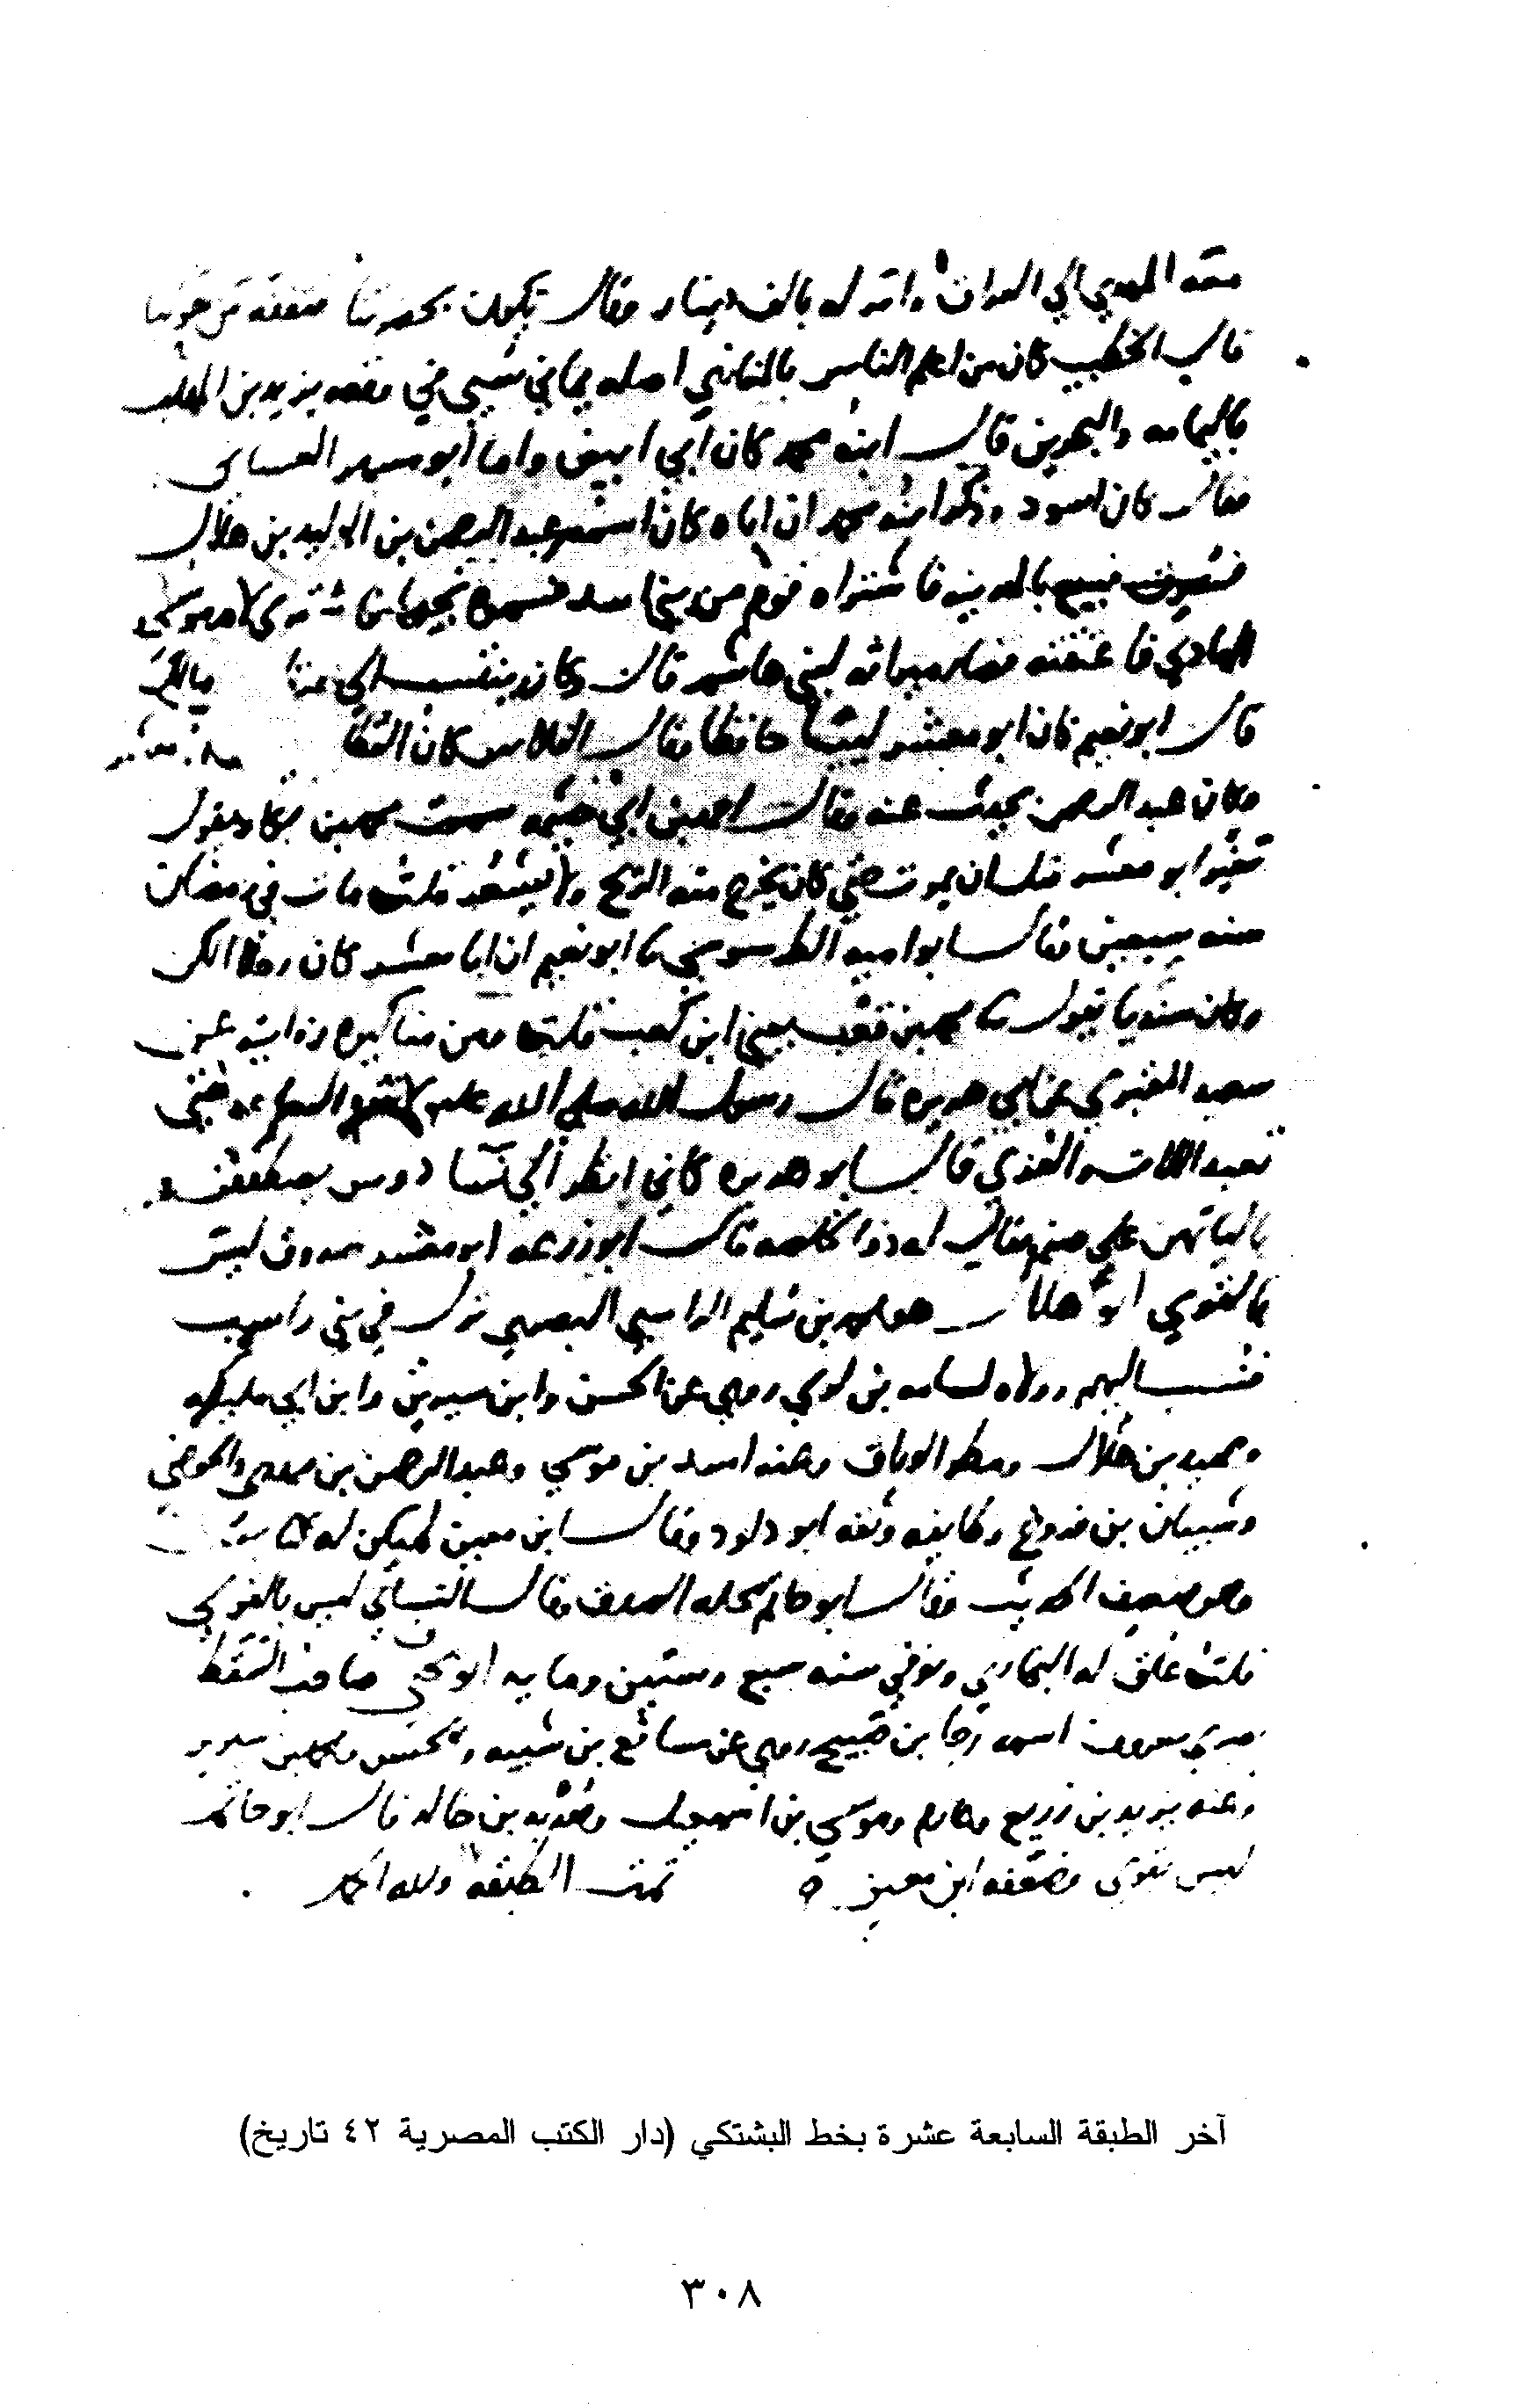 معه المهدي الي العراق وامر له بالف دينار وقال تكون بحضرتنا فتفقه من حولنا
قال الخطيب كان من اعلم الناس بالمغازي اصله يماني سبي في وقعه يزيد بن المهلب
باليمامه والبحرين قال ابنه محمد كان أبي ابيض واما ابو مسهر الغساني
فقال كان اسود وذكر ابنه محمد ان اباه كان اسمه عبد الرحمن بن الوليد بن هلال
فسرق فبيع بالمدينه فاشتراه قوم من بني اسد فسموه نجيحا فاشتري لام موسى
الهادي فاعتقته فصار ميراثه لبني هاشم قال وكان ينتسب الي
قال ابو نعيم كان ابو معشر حافظا وقال الفلاس كان القطان
وكان عبد الرحمن يحدث عنه وقال احمد بن ابي خيثمه سمعت محمد بن بكار يقول
تغير ابو معشر قبل ان يموت حتي كان يخرج منه الريح ولا يشعر قلت مات في رمضان
سنه سبعين وقال ابو اميه الطرسوسي ثنا ابو نعيم ان ابا معشر كان رجلا الكن
وكان سنديا يقول ثنا محمد بن قعب يعني ابن كعب قلت ومن مناكيره روايته عن
سعيد المقبري عن ابي هريره قال رسول الله صلي الله عليه لا تقوم الساعه حتي
تعبد اللات والعزي قال ابو هريره كاني انظر الي نسا دوس يصطفقن
بالياتهن علي صنم يقال له ذو الخلصه قال ابو زرعه ابو معشر صدوق ليس
بالقوي ابو هلال هو محمد بن سليم الراسبي البصري نزل في بني راسب
فنسب اليهم وولاه لسامه بن لوي روي عن الحسن وابن سيرين وابن ابي مليكه
وحميد بن هلال ومطر الوراق وعنه اسد بن موسي وعبد الرحمن بن مهدي والحوضي
وشيبان بن فروخ وطايفه وثقه ابو داود وقال ابن معين لم يكن له كتاب
وهو ضعيف الحديث وقال ابو حاتم محله الصدق وقال النسائي ليس بالقوي
قلت علق له البخاري وتوفي سنه سبع وستين ومايه ابو يحيى صاحب السقط
بصري معروف اسمه رجا بن صبيح روي عن مسافع بن شيبه والحسن ومحمد بن سيرين
وعنه يزيد بن زريع وعارم وموسي بن اسمعيل وهدبه بن خالد قال ابو حاتم
ليس بقوي وضعفه ابن معين ه تمت الطبقه ولله الحمد
آخر الطبقة السابعة عشرة بخط البشتكي (دار الكتب المصرية ٤٢ تاريخ)
٣٠٨